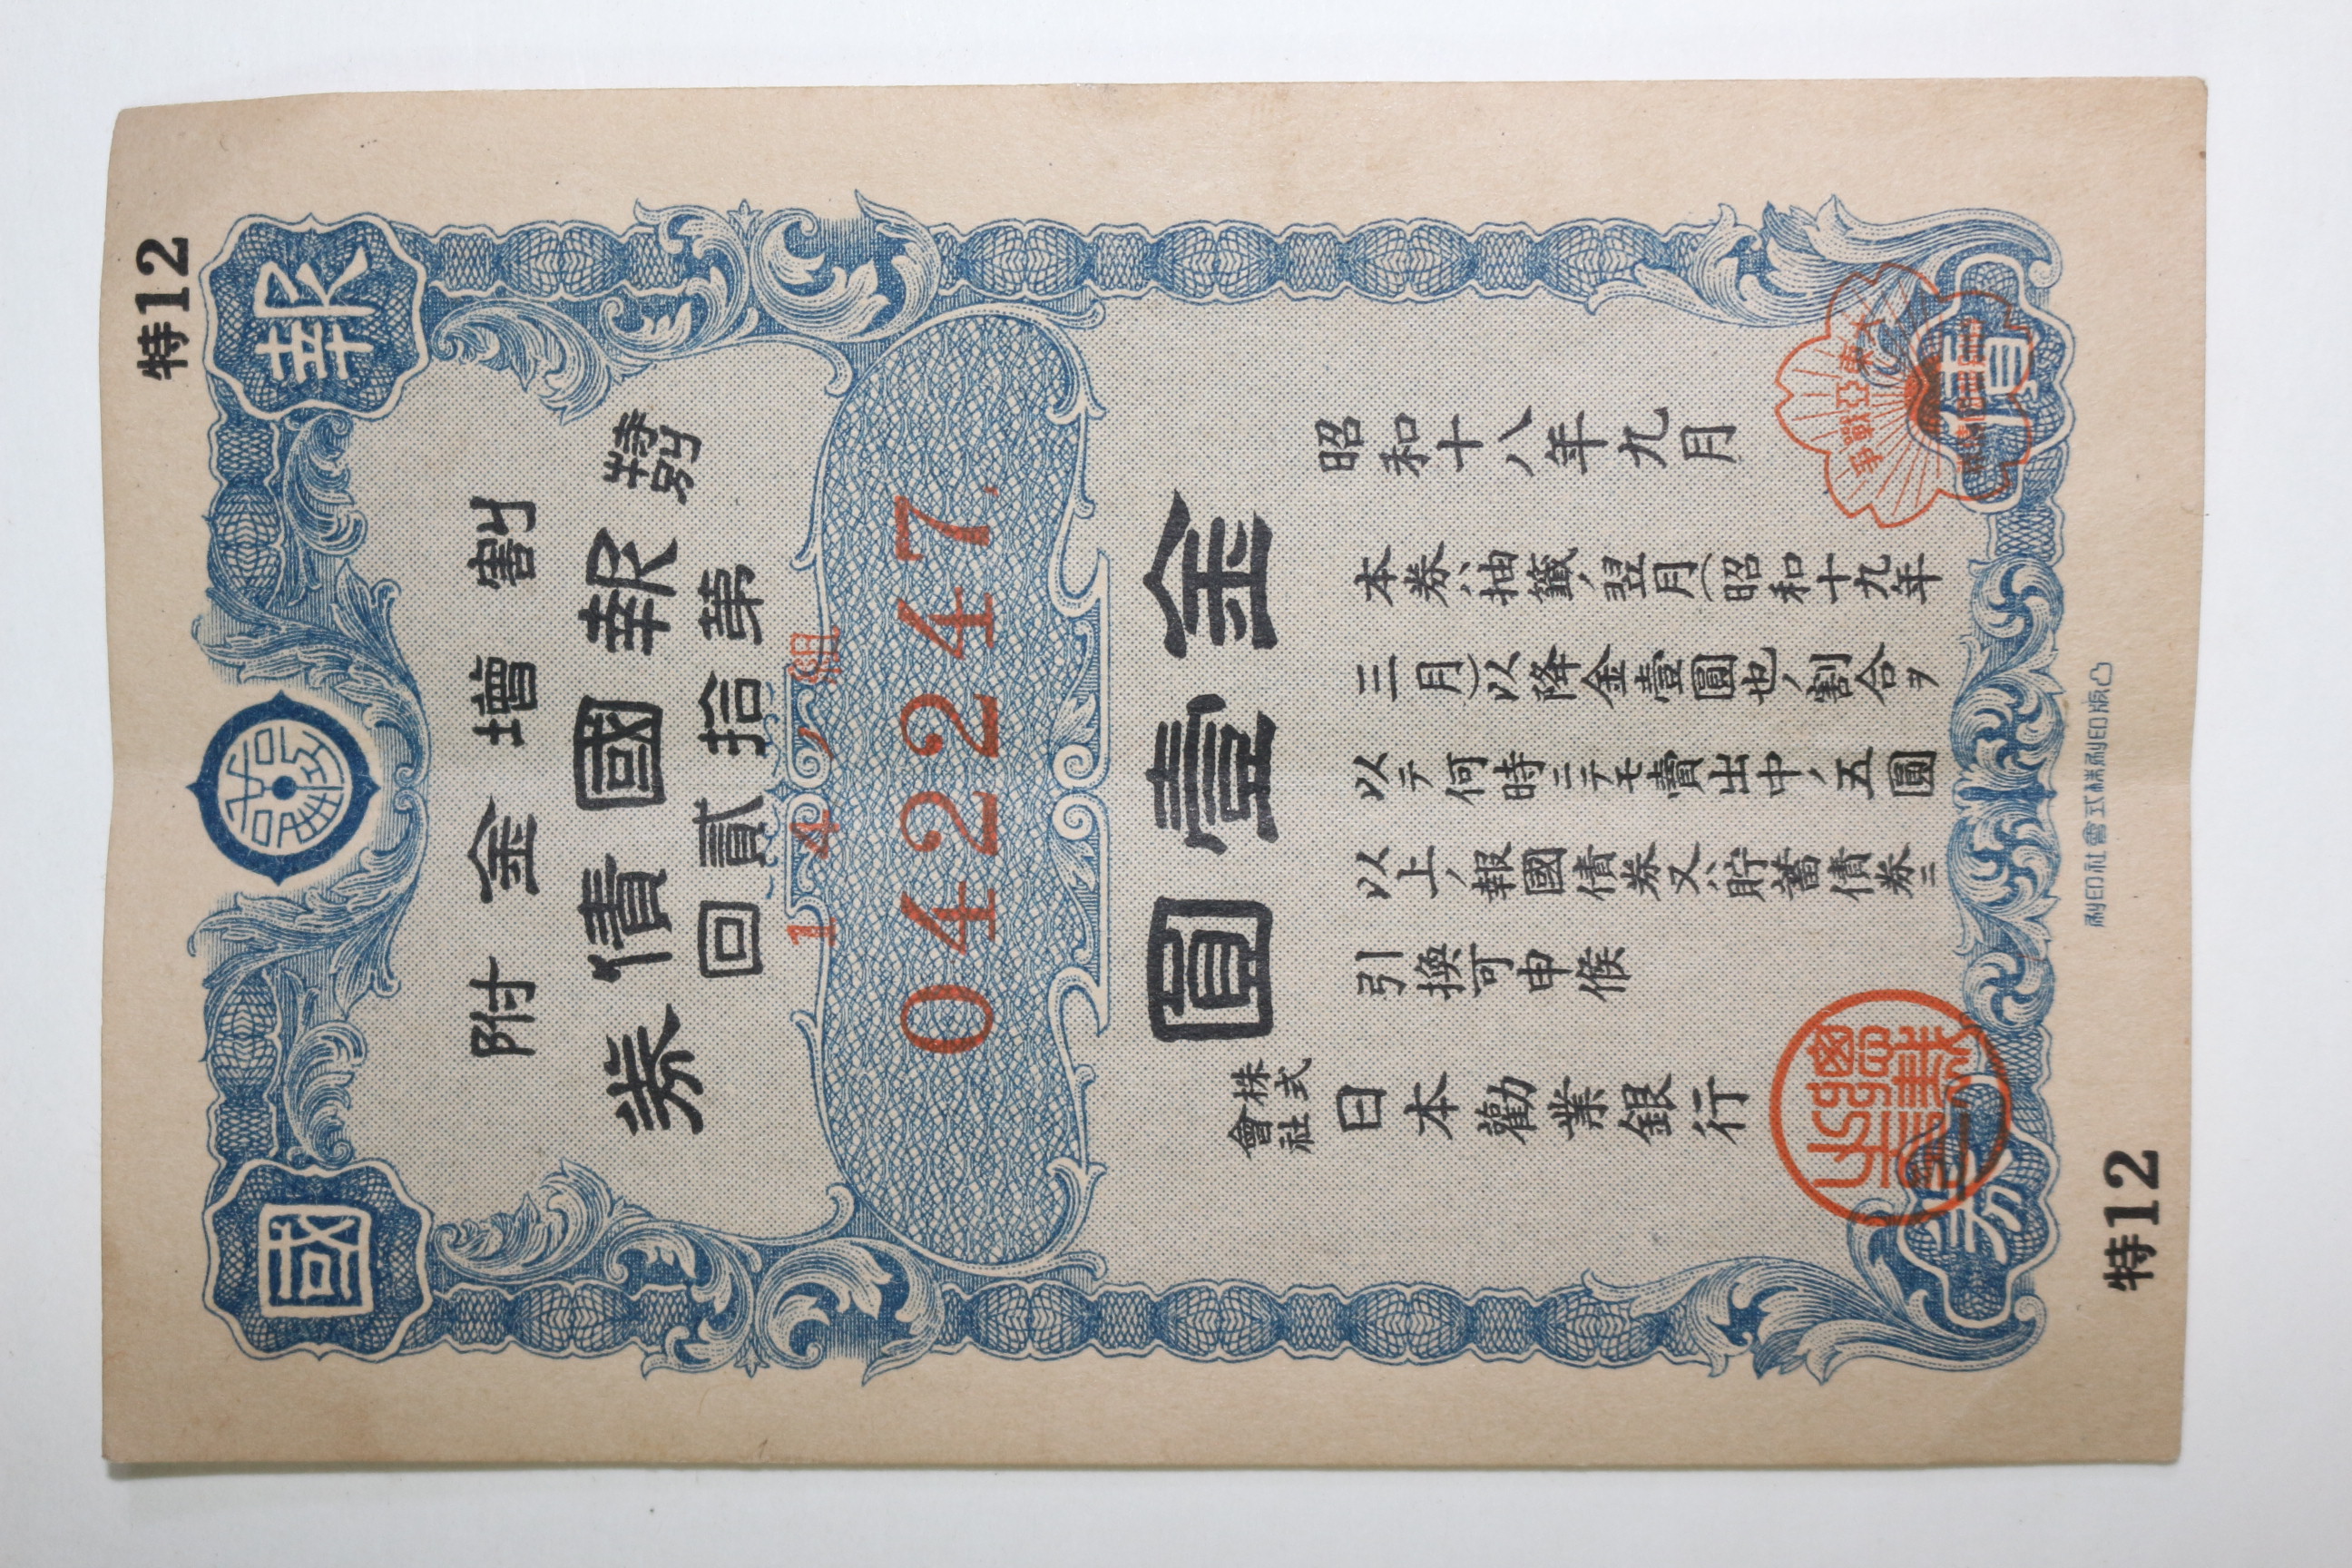 特12
報國
割增金附
特別報國債券
第拾貳回
14ノ組
042247
金壹圓
昭和十八年九月
本券ハ抽籤ノ翌月(昭和十九年
三月)以降金壹圓也ノ割合ヲ
以テ何時ニテモ賣出中ノ五圓
以上ノ報國債券又ハ貯蓄債券ニ
引換可申候
株式會社日本勸業銀行
大東亞戰爭
特別報國債券
債券
凸版印刷株式會社印刷
特12